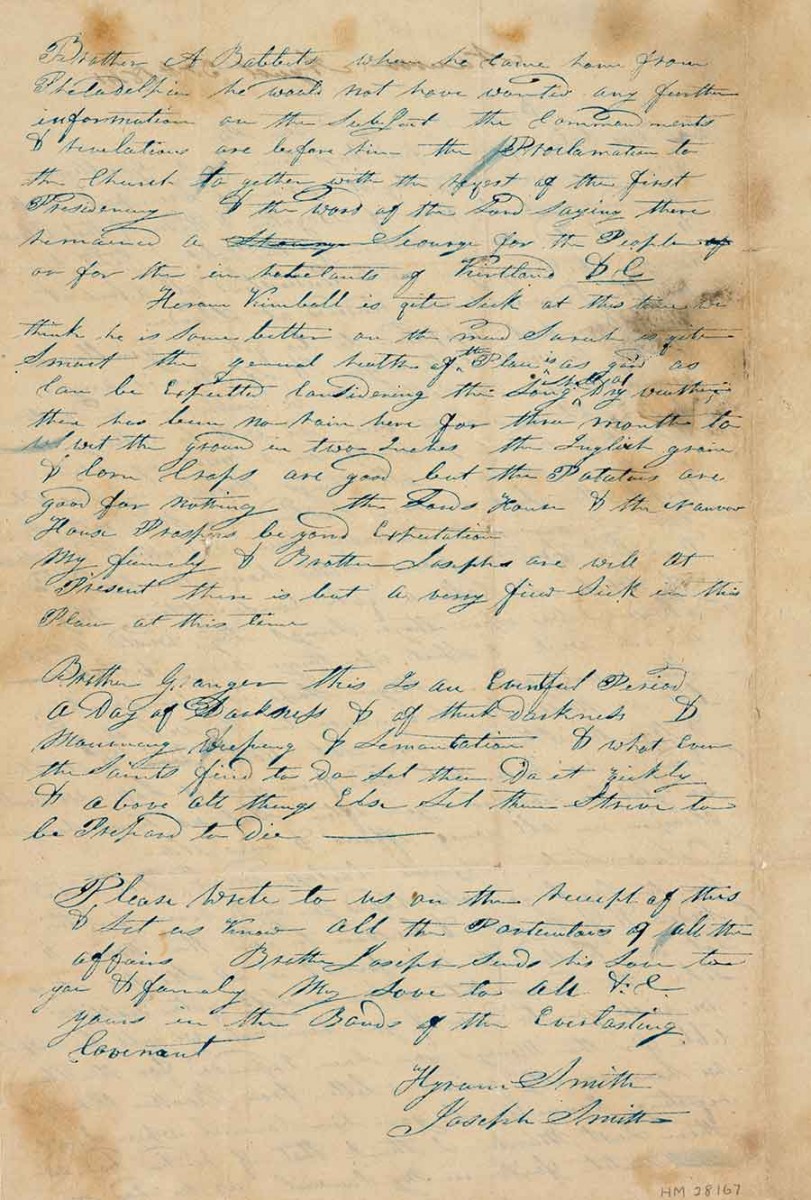 Brother A Babbits when he came home from
Philadelphia he would not have wanted any further
information on the Subject the Commandments
& revelations are before him the Proclamation to
the Church to gether with the request of the first
Presidency & the word of the Lord saying there
remained a Scourge for the People of
or for the in habitants of Kirtland &.C
Hiram Kimball is qite Sick at this time we
think he is Some better on the mend Sarah is qite
Smart the general health of the Place is as good as
can be Expected Considering the Long Dry weather
there has been no rain here for three months to
wet the ground in two Inches the Inglish grain
& Corn Crops are good but the Potatoes are
good for nothing the Lords House & the Nauvoo
House Prospers be yond Expectation
My family & Brother Josephs are well at
Present there is but a verry few Sick in this
Place at this time
Brother Granger this Is an Eventful Period
a Day of Darkness & of thick darkness &
Mourning Weeping & Lementation & what Ever
the Saints find to Do Let them Do it qickly
& above all things Else Let them Strive to
be Prepard to Die
Please Write to us on the receipt of this
& Let us Know all the Particulars of all the
affairs Brother Joseph Sends his Love to
you & famaly My Love to all &.C.
yours in the Bonds of the Everlasting
Covenant
Hyrum Smith
Joseph Smith
HM 28167